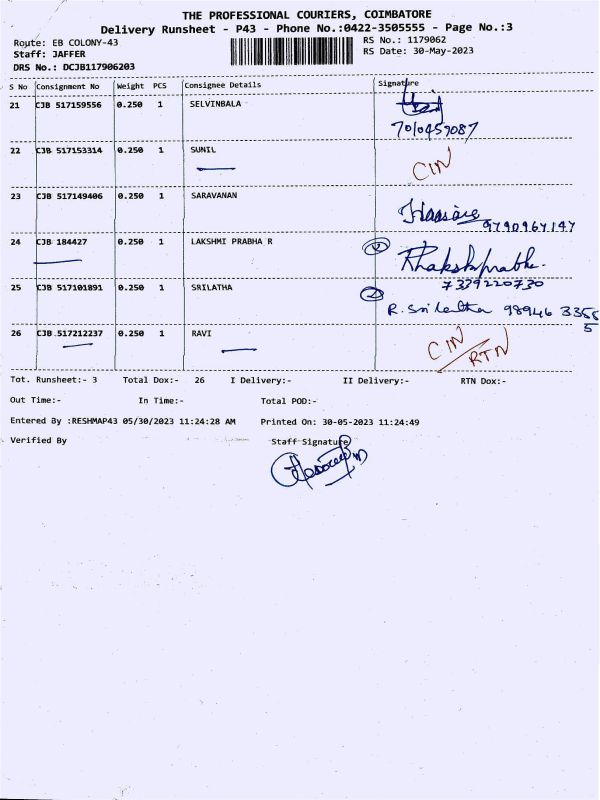 THE PROFESSIONAL COURIERS, COIMBATORE
Delivery Runsheet - P43 - Phone No.:0422-3505555 - Page No.:3
Route: EB COLONY-43 RS No.: 1179062
Staff: JAFFER RS Date: 30-May-2023
DRS No.: DCJB117906203
S No Consignment No Weight PCS Consignee Details Signature
21 CJB 517159556 0.250 1 SELVINBALA
7010459087
22 CJB 517153314 0.250 1 SUNIL CIN
23 CJB 517149406 0.250 1 SARAVANAN
9790967147
24 CJB 184427 0.250 1 LAKSHMI PRABHA R
7339220730
25 CJB 517101891 0.250 1 SRILATHA
R. Srilatha 98946 3355
5
26 CJB 517212237 0.250 1 RAVI CIN/RTN
Tot. Runsheet:- 3 Total Dox:- 26 I Delivery:- II Delivery:- RTN Dox:-
Out Time:- In Time:- Total POD:-
Entered By :RESHMAP43 05/30/2023 11:24:28 AM Printed On: 30-05-2023 11:24:49
Verified By Staff Signature